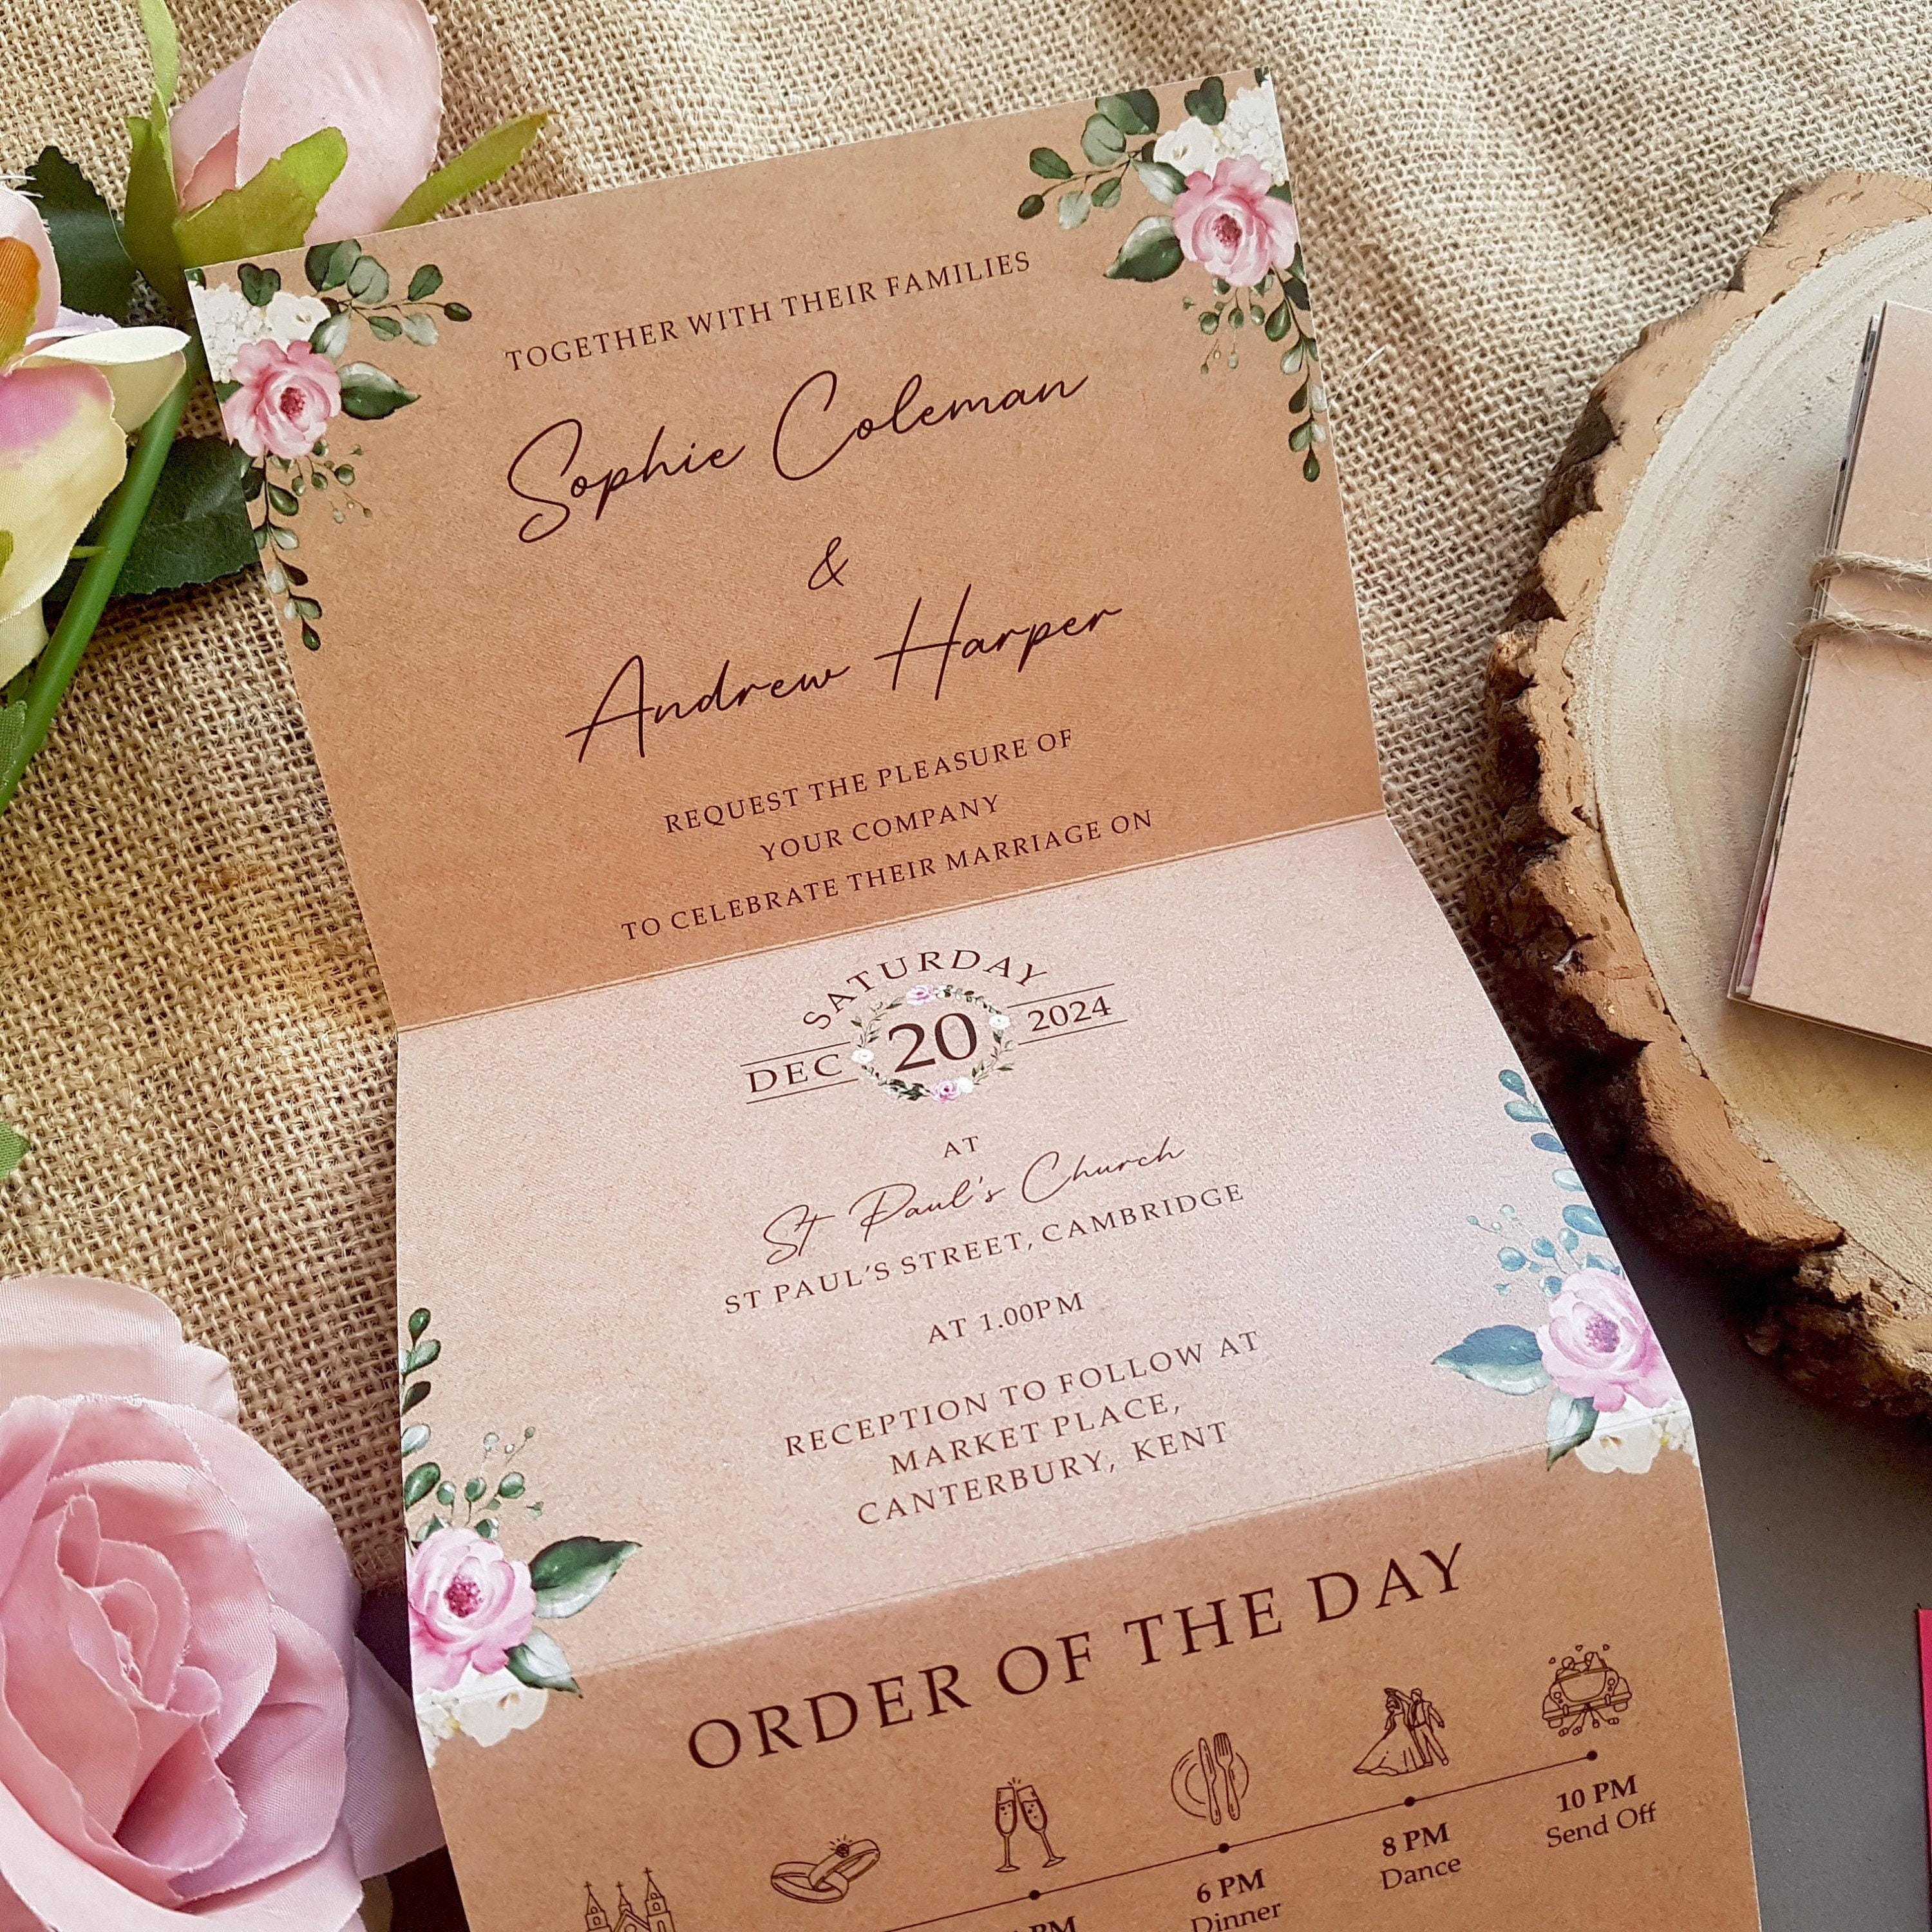 TOGETHER WITH THEIR FAMILIES
Sophie Coleman
&
Andrew Harper
REQUEST THE PLEASURE OF
YOUR COMPANY
TO CELEBRATE THEIR MARRIAGE ON
SATURDAY
DEC 20 2024
AT
St Paul's Church
ST PAUL'S STREET, CAMBRIDGE
AT 1.00PM
RECEPTION TO FOLLOW AT
MARKET PLACE,
CANTERBURY, KENT
ORDER OF THE DAY
10 PM
Send Off
8 PM
Dance
6 PM
Dinner
PM